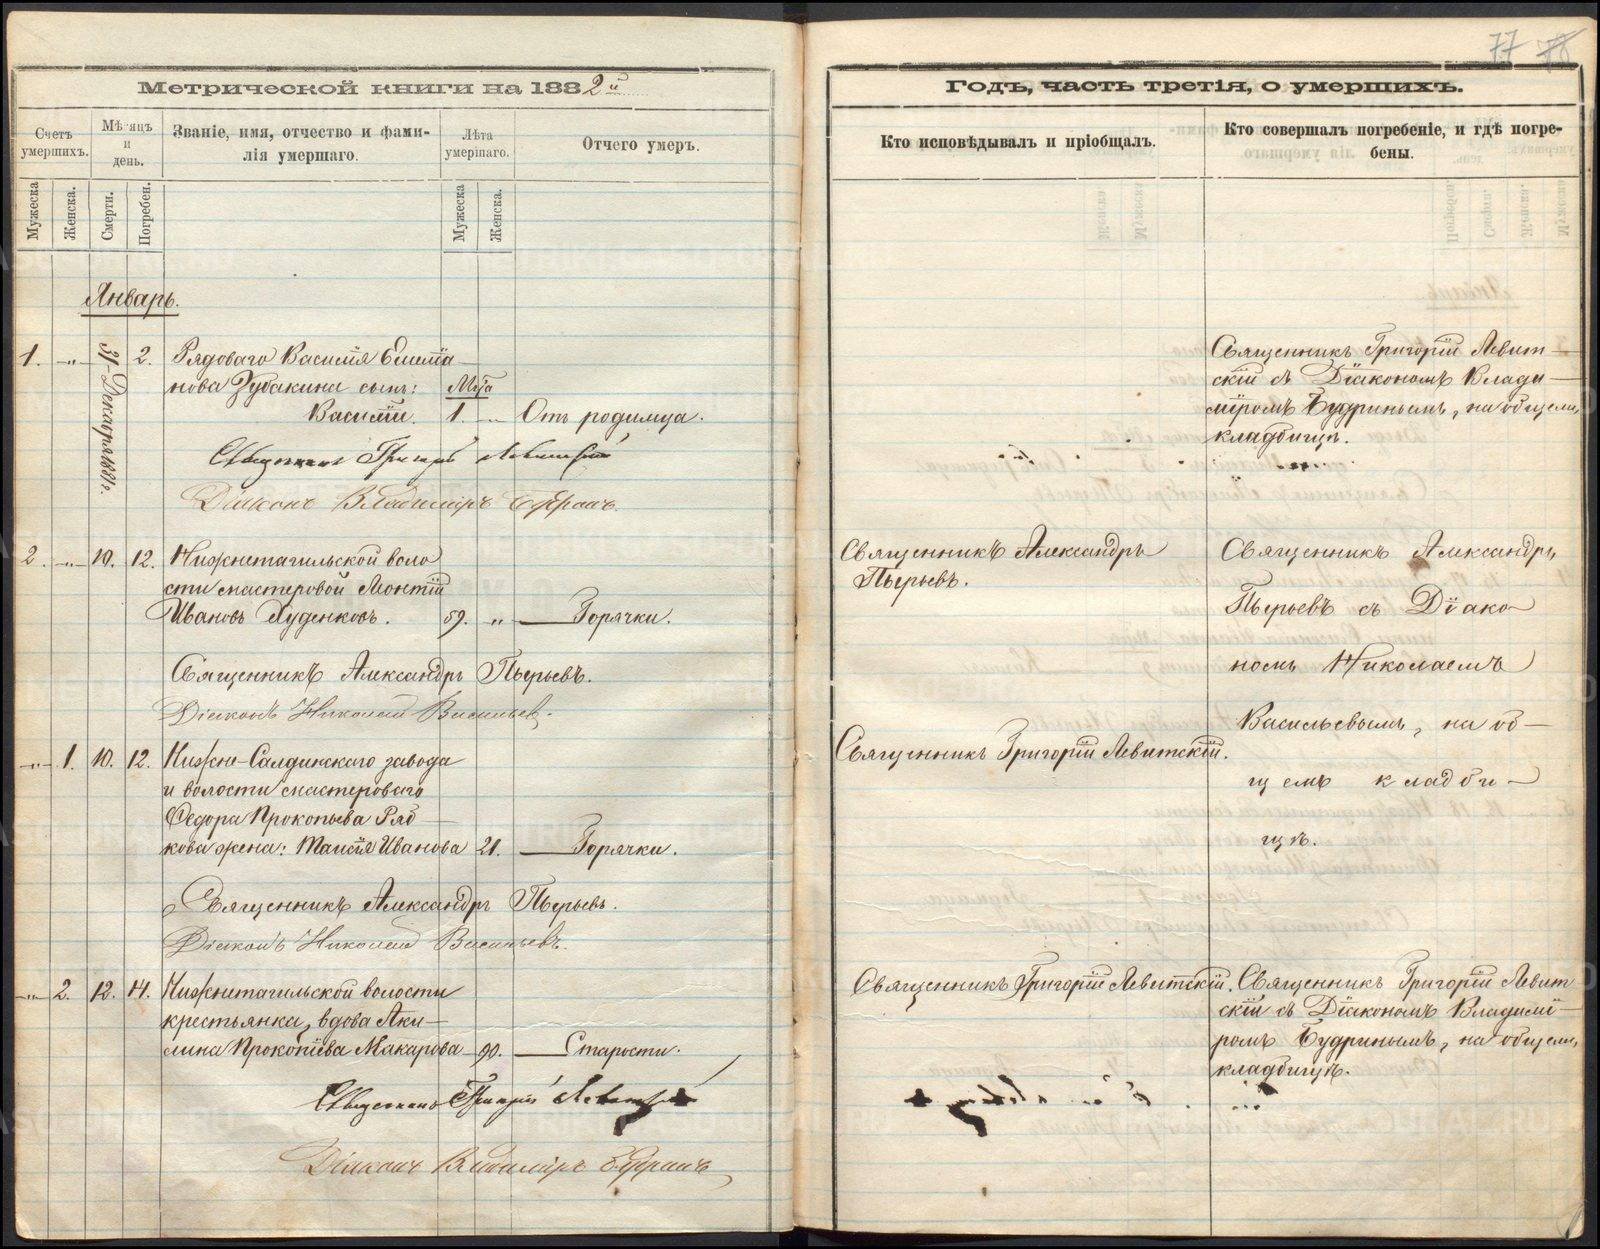 Метрической книги на 1882й
Счетъ умершихъ.
Мѣсяцъ и день.
Званіе, имя, отчество и фами-
лія умершаго.
Лѣта умершаго.
Отчего умеръ.
Мужеска
Женска.
Смерти.
Погребен.
Мужеска
Женска.
Январь.
1. „ 31 Декабря 1881 г. 2. Рядоваго Василія Емелiа
нова Зубакина сынъ: Мѣся
Василій. 1. „ Отъ родимца.
Священникъ Григорій Левитскій
Діаконъ Владиміръ
2. „ 10. 12. Нижнетагильской воло
сти мастеровой Монтій
Ивановъ Худенковъ. 59. „ Горячки.
Священникъ Александръ Пырьевъ.
Діаконъ Николай Васильев.
„ 1. 10. 12. Нижне-Салдинскаго завода
и волости мастероваго
Федора Прокопьева Ряб
кова жена: Таисія Иванова 21. Горячки.
Священникъ Александръ Пырьевъ.
Діаконъ Николай Васильевъ.
„ 2. 12. 14. Нижнетагильской волости
крестьянка, вдова Аки-
лина Прокопіева Макарова 90. Старости.
Священникъ Григорій Левитскій
Діаконъ Владиміръ
77 78
Годъ, часть третія, о умершихъ.
Кто исповѣдывалъ и пріобщалъ.
Кто совершалъ погребеніе, и гдѣ погре-
бены.
Священникъ Григорій Левит-
скій съ Діакономъ Влади-
міромъ Будринымъ, на общемъ
кладбищѣ.
Священникъ Александръ
Пырьевъ.
Священникъ Александръ
Пырьевъ съ Діако
номъ Николаемъ
Васильевымъ, на об-
щемъ кладби-
щѣ.
Священникъ Григорій Левитскій.
Священникъ Григорій Левитскій.
Священникъ Григорій Левит
скій съ Діакономъ Владимі-
ромъ Будринымъ, на общемъ
кладбищѣ.